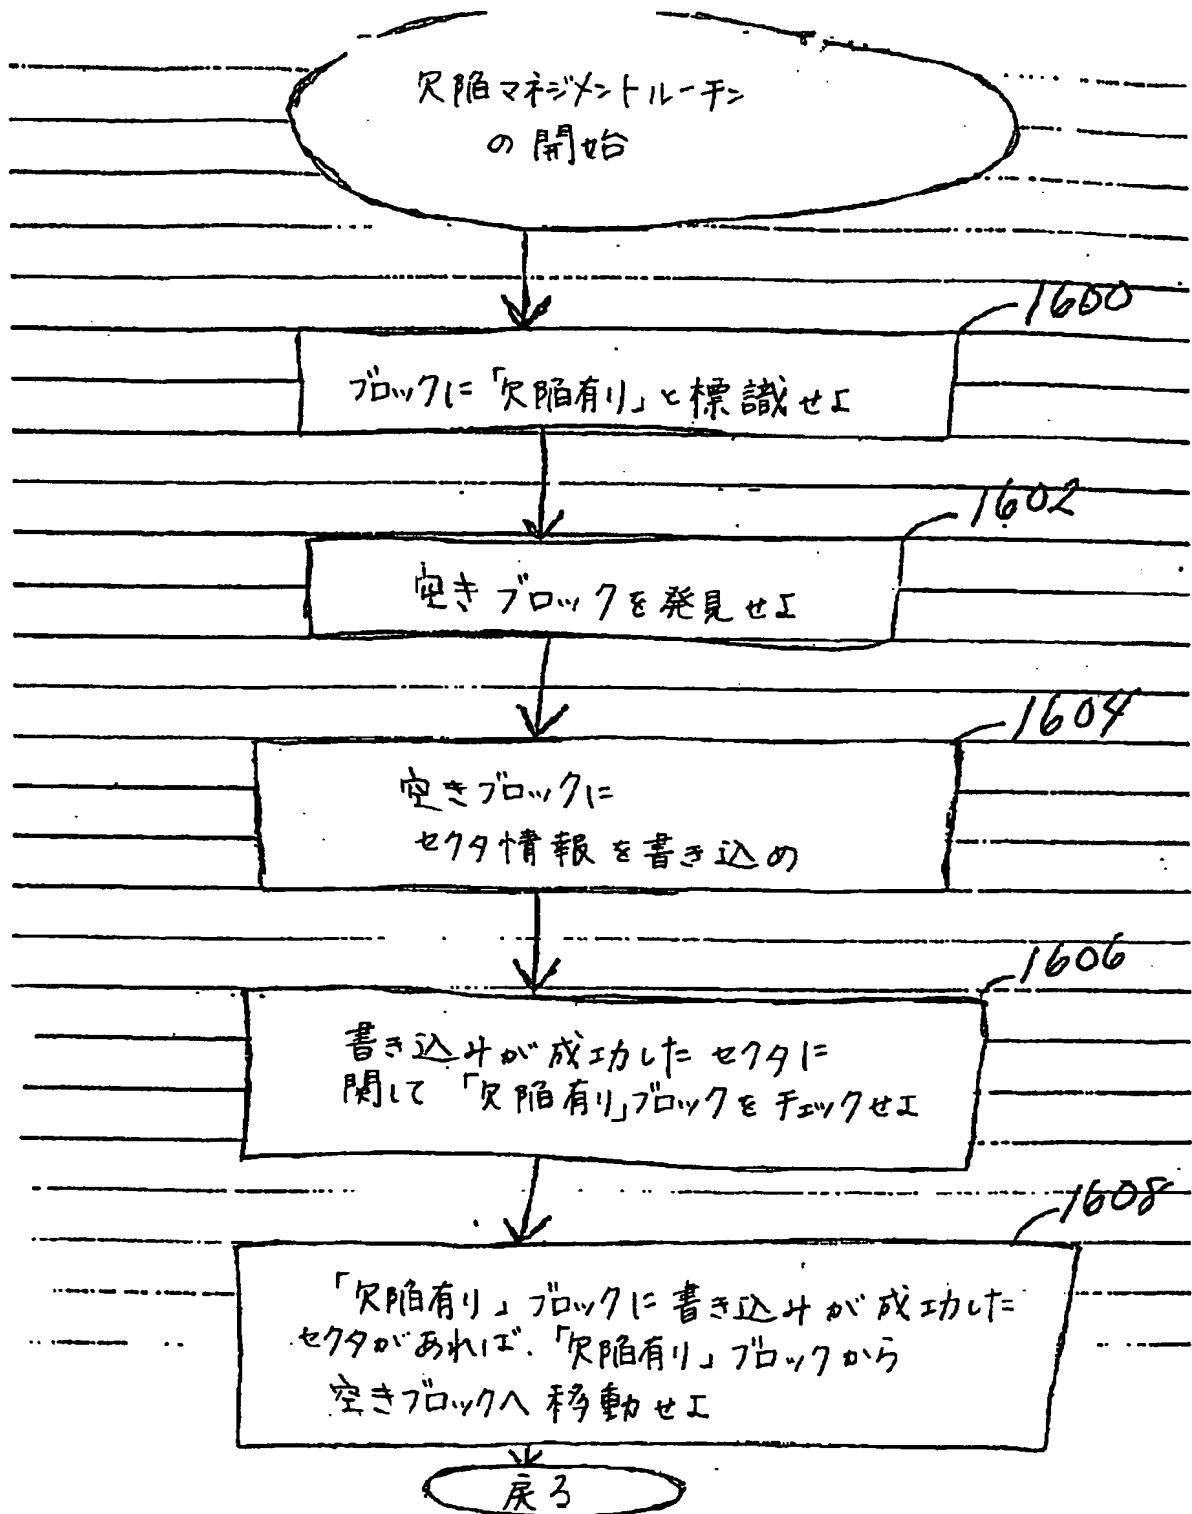 欠陥マネジメントルーチン
の開始
1600
ブロックに「欠陥有り」と標識せよ
1602
空きブロックを発見せよ
1604
空きブロックに
セクタ情報を書き込め
1606
書き込みが成功したセクタに
関して「欠陥有り」ブロックをチェックせよ
1608
「欠陥有り」ブロックに書き込みが成功した
セクタがあれば、「欠陥有り」ブロックから
空きブロックへ移動せよ
戻る